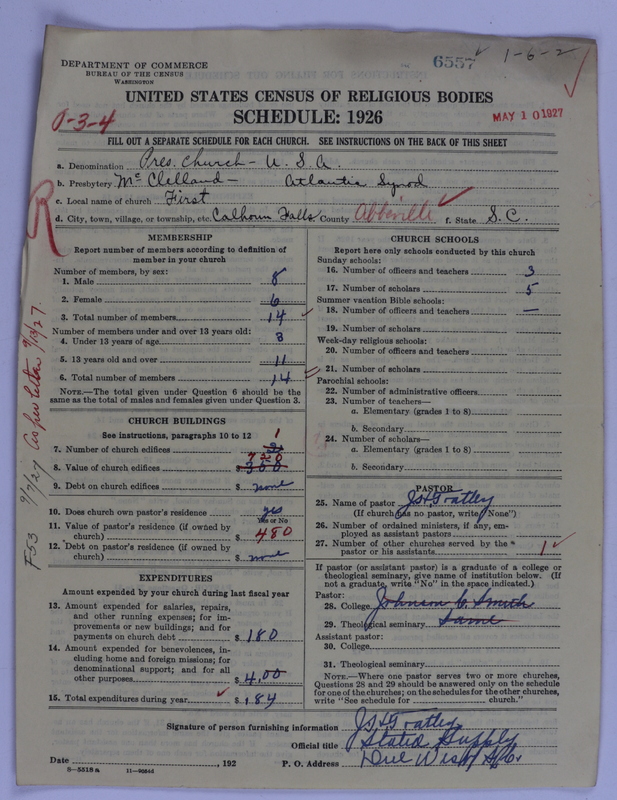 6557 1-6-2
DEPARTMENT OF COMMERCE
BUREAU OF THE CENSUS
WASHINGTON
UNITED STATES CENSUS OF RELIGIOUS BODIES
SCHEDULE: 1926
MAY 10 1927
0-3-4
FILL OUT A SEPARATE SCHEDULE FOR EACH CHURCH. SEE INSTRUCTIONS ON THE BACK OF THIS SHEET
a. Denomination Pres. Church - U. S. A.
b. Presbytery McClelland - Atlantic Synod
c. Local name of church First
d. City, town, village, or township, etc. Calhoun Falls County Abbeville f. State S.C.
MEMBERSHIP
Report number of members according to definition of member in your church
Number of members, by sex:
1. Male 8
2. Female 6
3. Total number of members 14
Number of members under and over 13 years old:
4. Under 13 years of age 3
5. 13 years old and over 11
6. Total number of members 14
NOTE.—The total given under Question 6 should be
same as the total of males and females given under Question 3.
CHURCH BUILDINGS
See instructions, paragraphs 10 to 12
7. Number of church edifices 1
720
8. Value of church edifices $ 300
9. Debt on church edifices $ none
10. Does church own pastor's residence yes
Yes or No
11. Value of pastor's residence (if owned by
church) $ 480
12. Debt on pastor's residence (if owned by
church) $ none
EXPENDITURES
Amount expended by your church during last fiscal year
13. Amount expended for salaries, repairs,
and other running expenses; for im-
provements or new buildings; and for
payments on church debt $ 180
14. Amount expended for benevolences, in-
cluding home and foreign missions; for
denominational support; and for all
other purposes $ 4.00
15. Total expenditures during year $ 184
CHURCH SCHOOLS
Report here only schools conducted by this church
Sunday schools:
16. Number of officers and teachers 3
17. Number of scholars 5
Summer vacation Bible schools:
18. Number of officers and teachers —
19. Number of scholars
Week-day religious schools:
20. Number of officers and teachers
21. Number of scholars
Parochial schools:
22. Number of administrative officers
23. Number of teachers—
a. Elementary (grades 1 to 8)
b. Secondary
24. Number of scholars—
a. Elementary (grades 1 to 8)
b. Secondary
PASTOR
25. Name of pastor
(If church has no pastor, write "None")
26. Number of ordained ministers, if any, em-
ployed as assistant pastors
27. Number of other churches served by the
pastor or his assistants 1
If pastor (or assistant pastor) is a graduate of a college or
theological seminary, give name of institution below. (If
not a graduate, write "No" in the space indicated.)
Pastor:
28. College Johnson C. Smith
29. Theological seminary Same
Assistant pastor:
30. College
31. Theological seminary
NOTE.—Where one pastor serves two or more churches,
Questions 28 and 29 should be answered only on the schedule
for one of the churches; on the schedules for the other churches,
write "See schedule for church."
Signature of person furnishing information
Official title Stated Supply
Date , 192 P. O. Address Due West, S.C.
8—5518a 11—90544
F-53 9/7/27 As per letter 9/13/27.